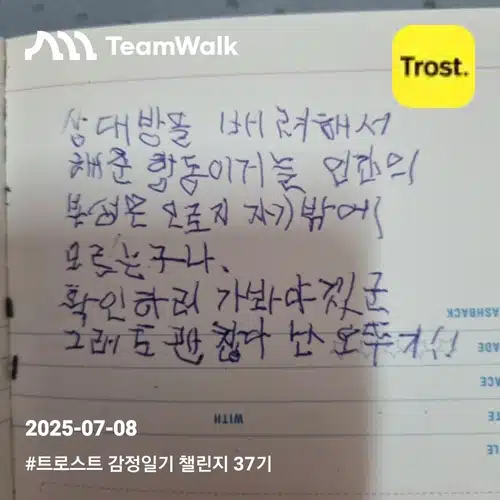 TeamWalk
Trost.
상대방을 배려해서
해준 합동이거늘 인간의
본성은 오로지 자기밖에
모르는구나.
확인하러 가봐야겠군
그래도 괜찮다 난 오뚜기니
WITH
2025-07-08
#트로스트 감정일기 챌린지 37기